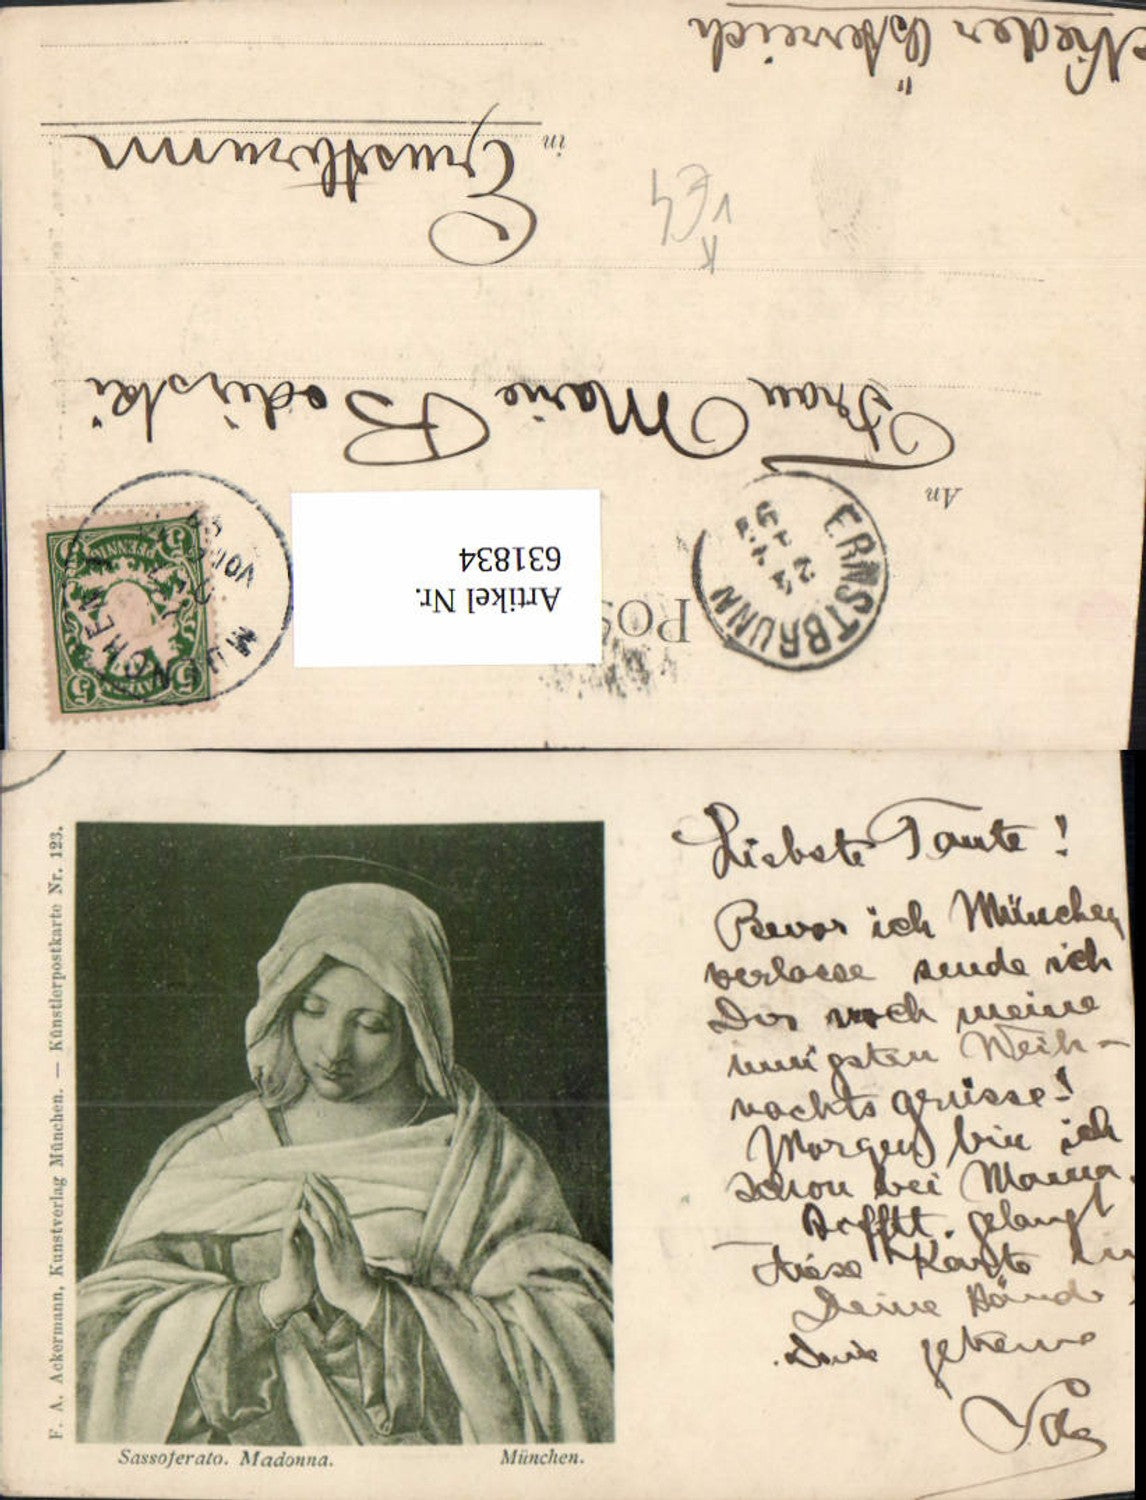 Nieder Österreich
in
Ernstbrunn
K
Frau Marie Bodirski
An
ERNSTBRUNN
MÜNCHEN
5
5
5
PFENNIG
BAYERN
Artikel Nr.
631834
Liebste Tante!
Bevor ich München
verlasse sende ich
Dir noch meine
innigsten Weih-
nachtsgrüsse!
Morgen bin ich
schon bei Mama.
Hfftl. gelangt
diese Karte in
Deine Hände.
Deine getreue
Ida
F. A. Ackermann, Kunstverlag München. — Künstlerpostkarte Nr. 123.
Sassoferato. Madonna. München.